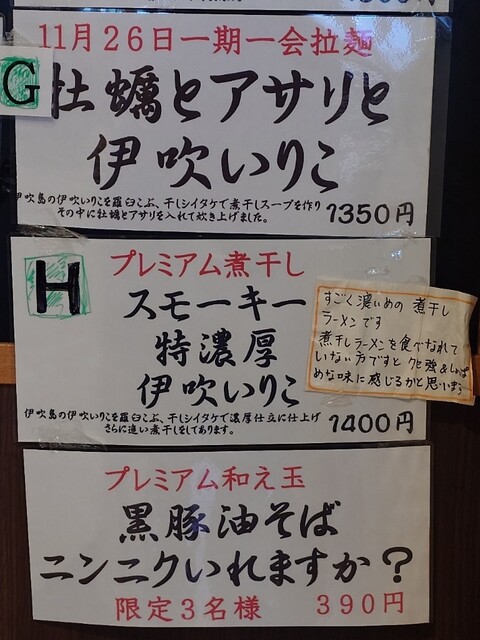 11月26日一期一会拉麺
G
牡蠣とアサリと
伊吹いりこ
伊吹島の伊吹いりこを羅臼こぶ、干しシイタケで煮干しスープを作り
その中に牡蠣とアサリを入れて炊き上げました。
1350円
H
プレミアム煮干し
スモーキー
特濃厚
伊吹いりこ
伊吹島の伊吹いりこを羅臼こぶ、干しシイタケで濃厚仕立に仕上げ
さらに追い煮干しをしてあります。
1400円
すごく濃いめの煮干し
ラーメンです
煮干しラーメンを食べなれて
いない方ですとクセ強&しょっぱ
めな味に感じるかと思います
プレミアム和え玉
黒豚油そば
ニンニクいれますか？
限定3名様 390円